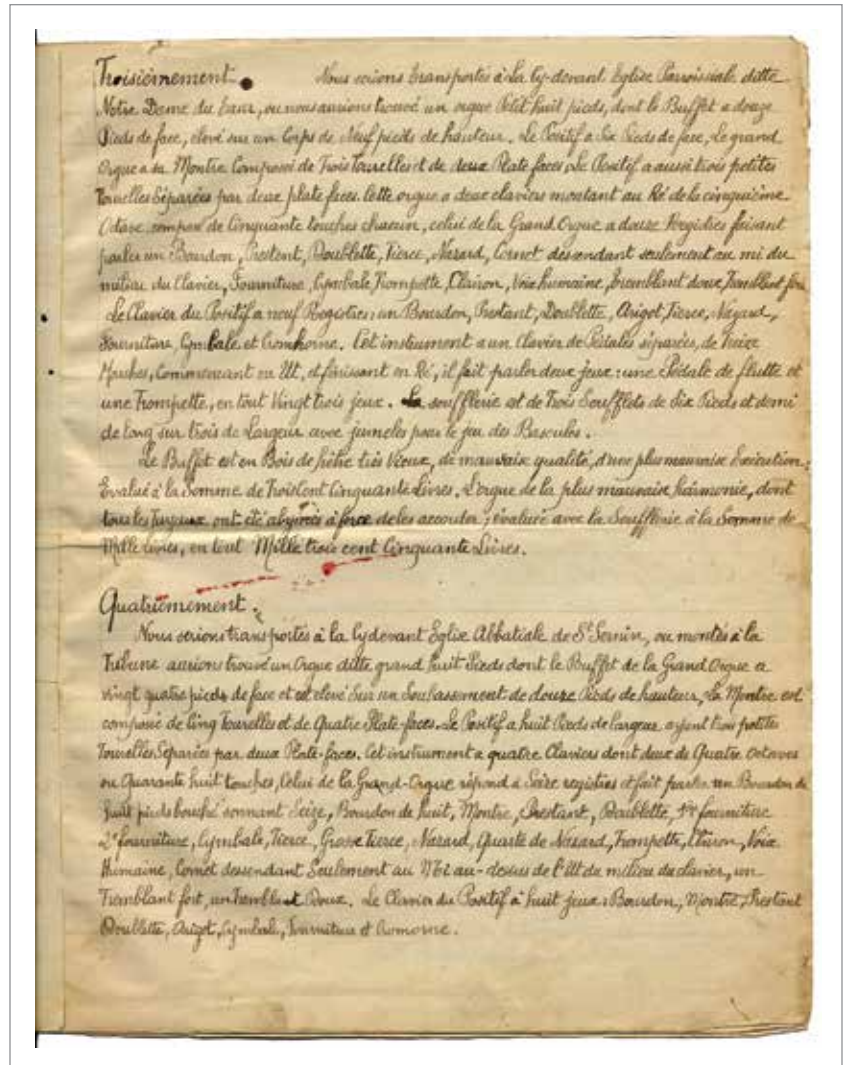 Troisièmement. Nous serions transportés à La Cy-devant Eglise Parroissiale ditte
Notre Dame du Taur, ou nous aurions trouvé un orgue Petit huit pieds, dont le Buffet a douze
Pieds de face, élevé sur un Corps de Neuf pieds de hauteur. Le Positif a Six Pieds de face, Le grand
Orgue a sa Montre Composée de Trois Tourelles et de deux Plate faces. Le Positif a aussi trois petites
Tourelles Séparées par deux plate faces. Cette orgue a deux claviers montant au Ré de la cinquième
Octave, composé de Cinquante touches chacun, celui de la Grand Orgue a douze Regidres faisant
parler un Bourdon, Prestent, Doublette, Tierce, Nazard, Cornet descendant seulement au mi du
milieu du Clavier, Fourniture, Cymbale, Trompette, Clairon, Voix humaine, tremblant doux, Tremblant fort.
Le Clavier du Positif a neuf Registres: un Bourdon, Prestant, Doublette, Arigot, Tierce, Nazard,
Fourniture, Cymbale et Cromhorne. Cet instrument a un Clavier de Pédales séparées, de Treize
Marches, Commencant en Ut, et finissant en Ré, il fait parler deux jeux: une Pédale de flutte et
une Trompette, en tout Vingt trois jeux. La soufflerie est de Trois Soufflets de Six Pieds et demi
de long sur trois de Largeur avec jumeles pour le jeu des Bascules.
Le Buffet est en Bois de très Vieux, de mauvaise qualité, d'une plus mauvaise Exécution,
Evalué à la Somme de Trois Cent Cinquante Livres. L'orgue de la plus mauvaise harmonie, dont
tous les Tuyaux ont été abymés à force de les accorder; évaluée avec la Soufflerie à la Somme de
Mille livres, en tout Mille trois cent Cinquante Livres.
Quatrièmement.
Nous serions transportés à la Cydevant Eglise Abbatiale de St Sernin, ou montés à la
Tribune aurions trouvé un Orgue ditte grand huit Pieds dont le Buffet de la Grand Orgue a
vingt quatre pieds de face et est élevé Sur un Soubassement de douze Pieds de hauteur, La Montre est
composé de Cinq Tourelles et de Quatre Plate-faces. Le Positif a huit Pieds de largeur ayent trois petites
Tourelles Séparées par deux Plate-faces. Cet instrument a quatre Claviers dont deux de Quatre Octaves
ou Quarante huit touches, Celui de la Grand-Orgue répond à Seize registres et fait parler un Bourdon de
huit pieds bouché sonnant Seize, Bourdon de huit, Montre, Prestant, Doublette, 1re fourniture
2e fourniture, Cymbale, Tierce, Grosse Tierce, Nazard, Quarte de Nazard, Trompette, Clairon, Voix
Humaine, Cornet dessendant Seulement au Mi au-dessus de l'Ut du milieu du clavier, un
Tremblant fort, un Tremblant Doux. Le Clavier du Positif a huit jeux: Bourdon, Montre, Prestant
Doublette, Arigot, Cymbale, Fourniture et Cromorne.